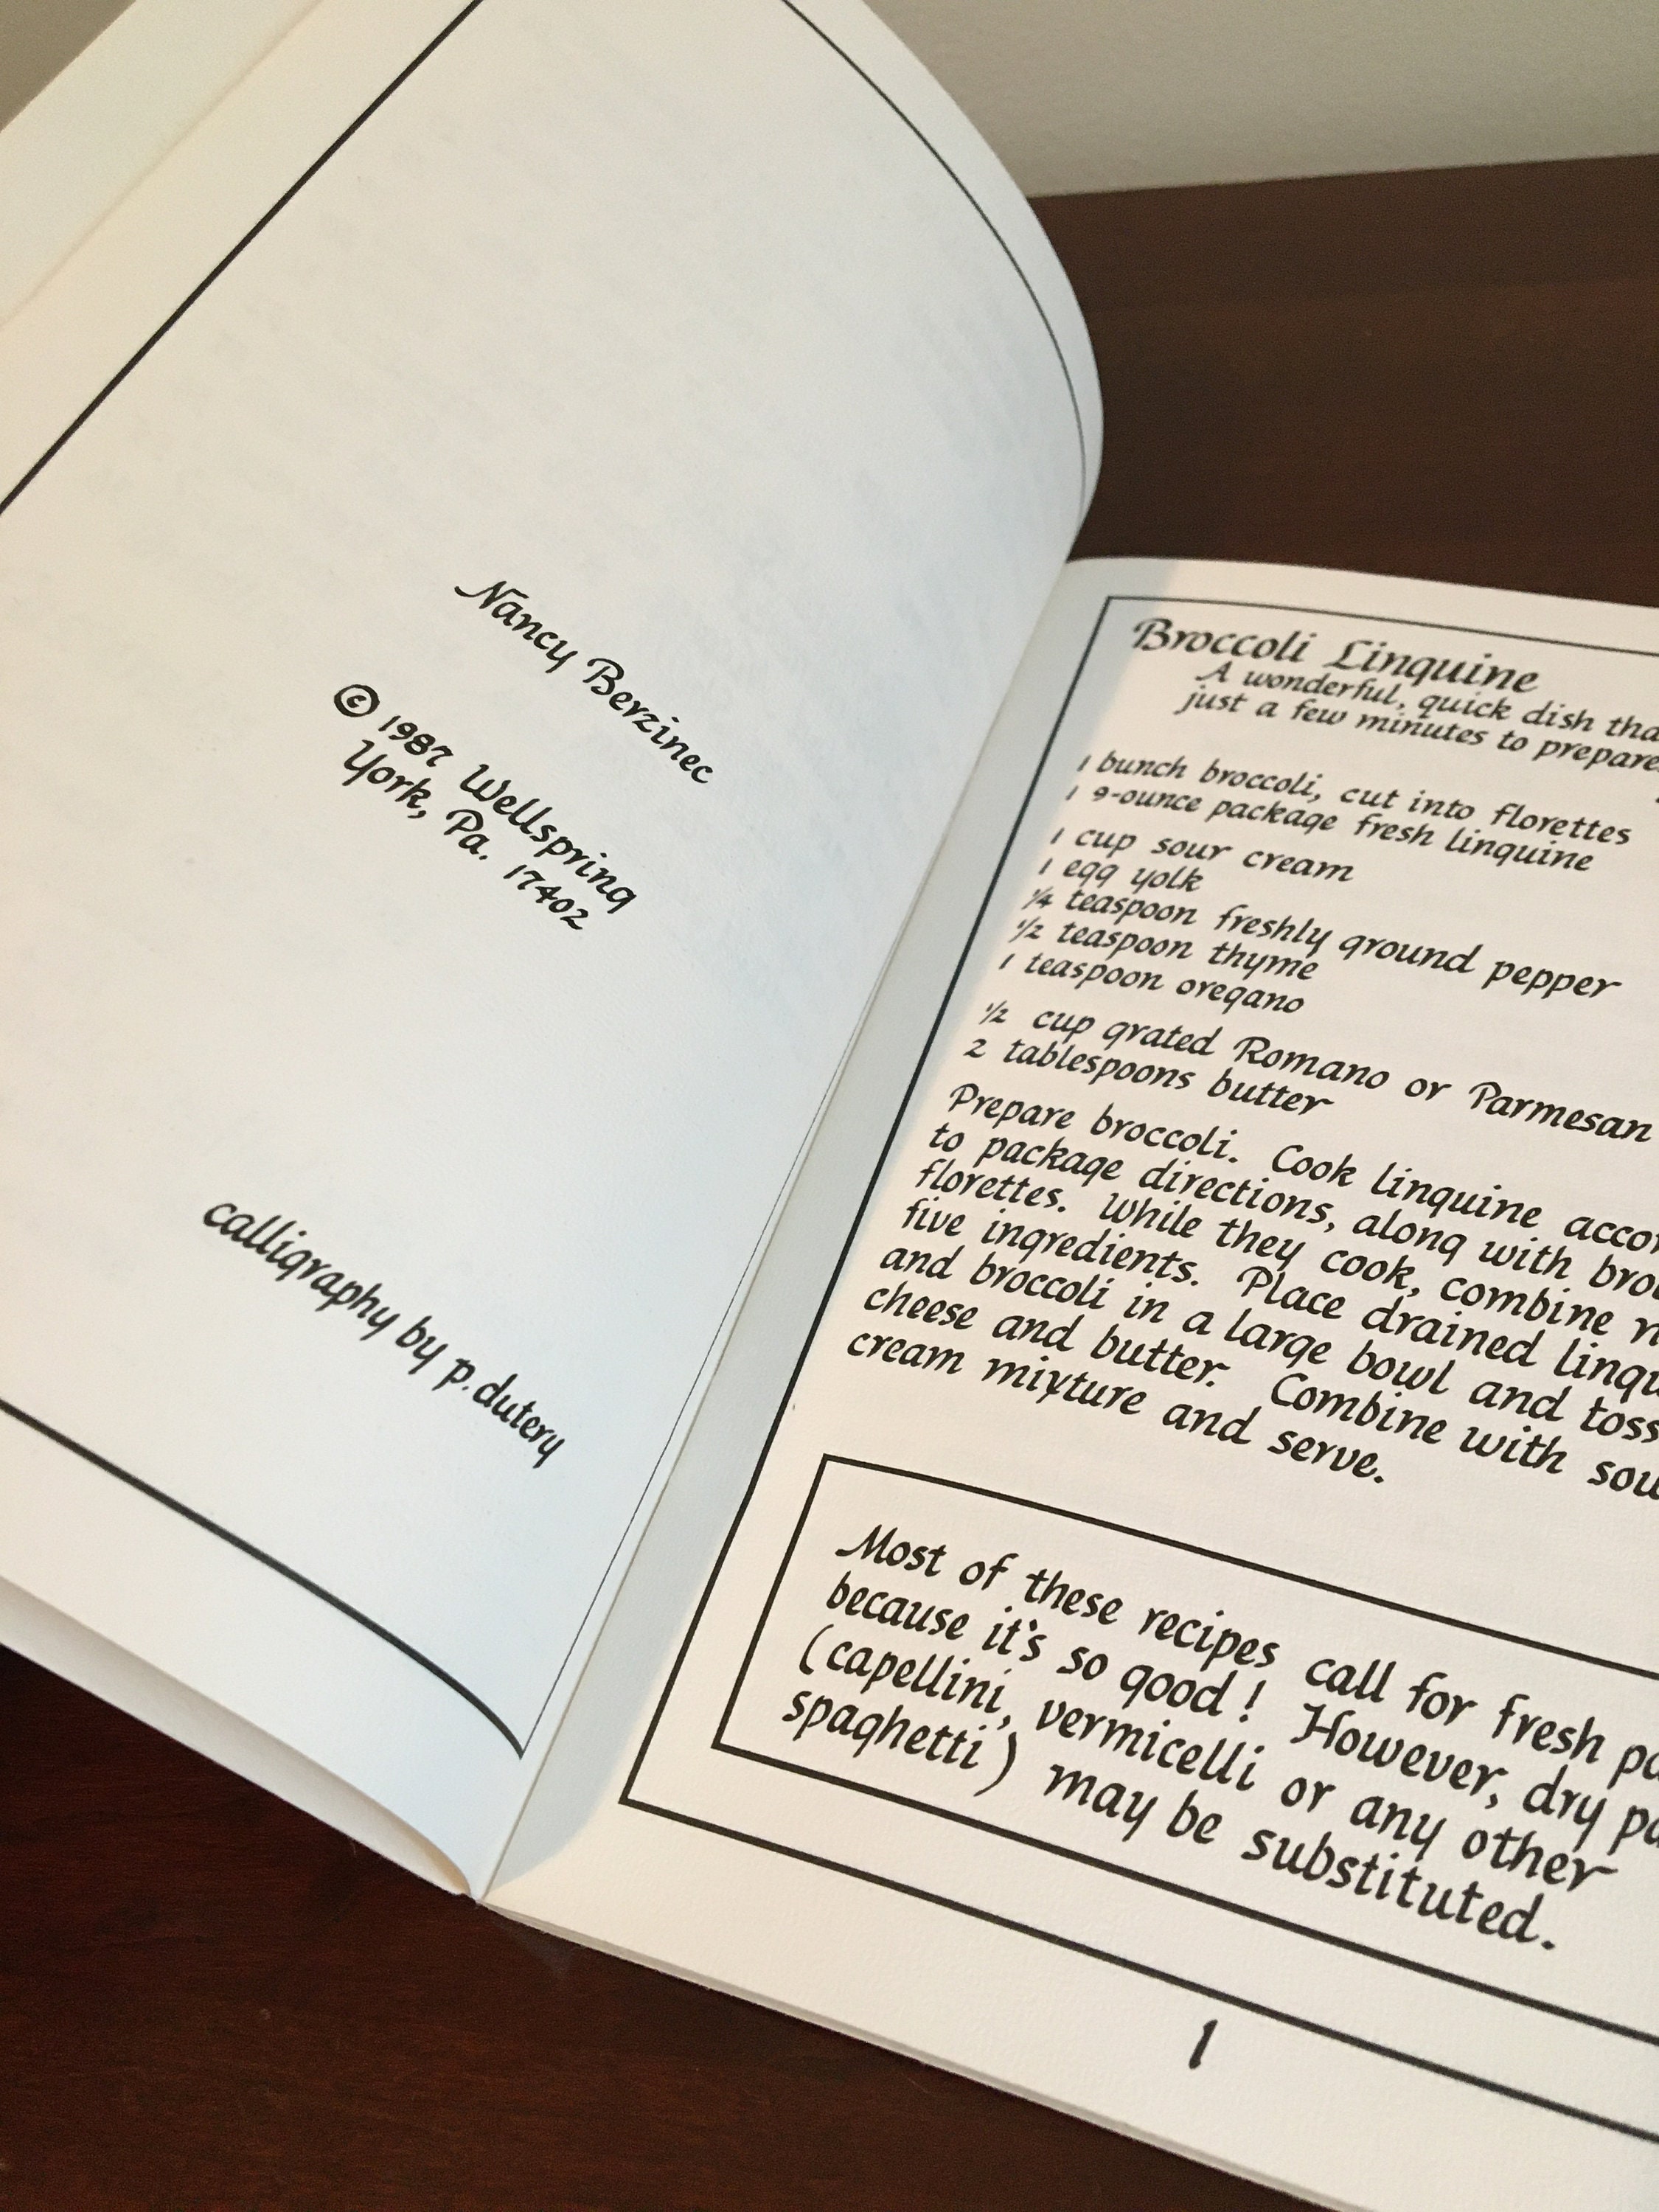 Nancy Berzinec
© 1987 Wellspring
York, Pa. 17402
calligraphy by p. dutery
Broccoli Linguine
A wonderful, quick dish
just a few minutes to prepare
1 bunch broccoli, cut into florettes
1 9-ounce package fresh linguine
1 cup sour cream
1 egg yolk
1/4 teaspoon freshly ground pepper
1/2 teaspoon thyme
1 teaspoon oregano
1/2 cup grated Romano or Parmesan
2 tablespoons butter
Prepare broccoli. Cook linguine
to package directions, along with
florettes. While they cook, combine
five ingredients. Place drained
and broccoli in a large bowl and toss
cheese and butter. Combine with
cream mixture and serve.
Most of these recipes call for fresh
because it's so good! However, dry
(capellini, vermicelli or any other
spaghetti) may be substituted.
1